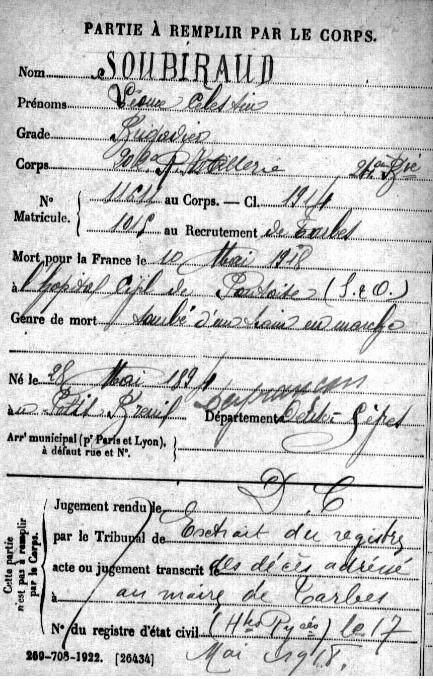 PARTIE À REMPLIR PAR LE CORPS.
Nom SOUBIRAUD
Prénoms Célestin
Grade Brigadier
Corps R. Artillerie
N° Matricule. au Corps. — Cl. 1914
1015 au Recrutement de Tarbes
Mort pour la France le 10 Mai 1918
à l'hôpital Civil de Pontoise (S. & O.)
Genre de mort tombé d'un train en marche
Né le 28 Mai 1894
à Petit Breuil Département Deux-Sèvres
Arrt municipal (pr Paris et Lyon), à défaut rue et N°.
D. C
Cette partie n'est pas à remplir par le Corps.
Jugement rendu le
par le Tribunal de Extrait du registre
acte ou jugement transcrit le des décès adressé
à au maire de Tarbes
N° du registre d'état civil (Htes Pyées) le 17
Mai 1918.
269-708-1922. [26434]